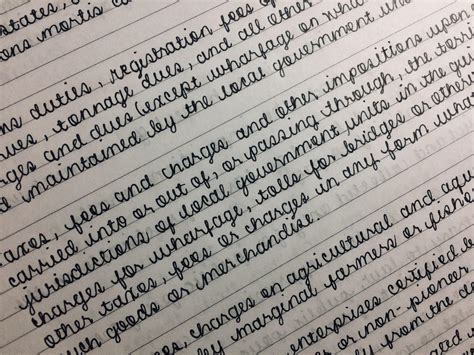 states,
ons mortis ca
ms duties, registration fees of
ues, tonnage dues, and all other
rges and dues (except wharfage on wha
d maintained by the local government
axes, fees and charges and other impositions upon
carried into or out of, or passing through, the terri
jurisdictions of local government units in the gui
charges for wharfage, tolls for bridges or othe
other taxes, fees or charges in any form wha
uch goods or merchandise
es, charges on agricultural and aqu
by marginal farmers or fishe
enterprises certified
s or non-pioneer
ly from the da